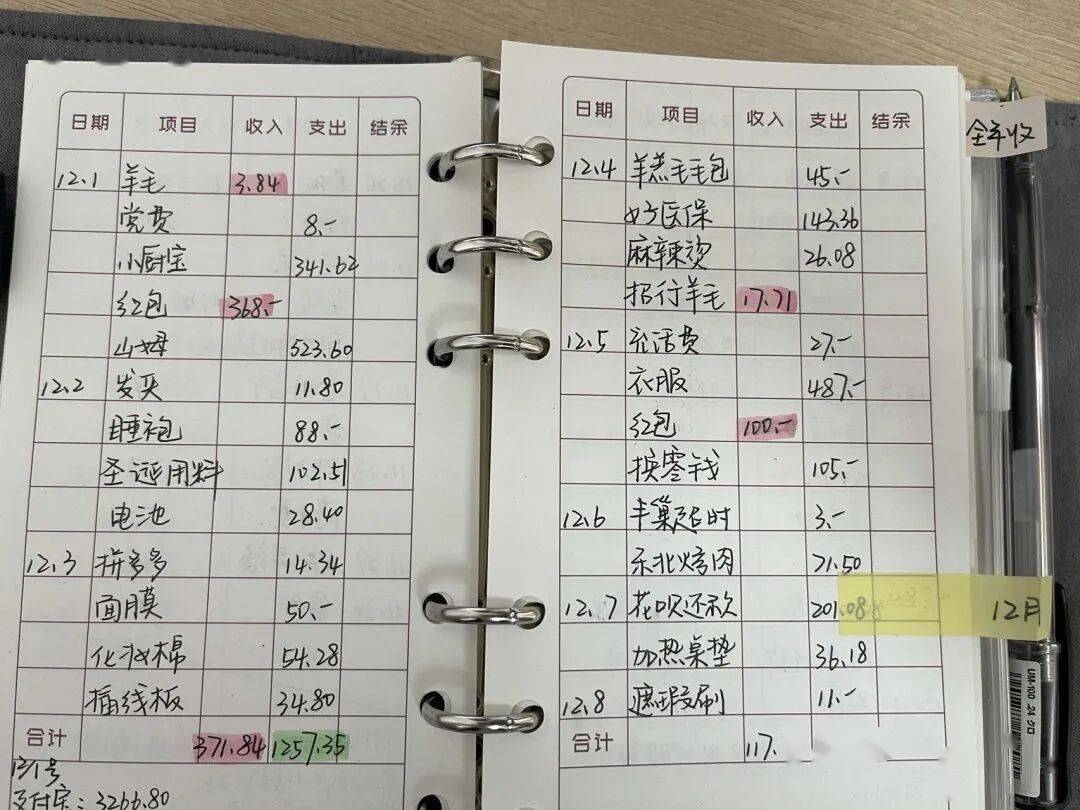 日期 项目 收入 支出 结余
12.1 羊毛 3.84
党费 8.-
小厨宝 341.62
红包 368.-
山姆 523.60
12.2 发夹 11.80
睡袍 88.-
圣诞用料 102.51
电池 28.40
12.3 拼多多 14.34
面膜 50.-
化妆棉 54.28
插线板 34.80
合计 371.84 1257.35
支付宝: 3266.80
日期 项目 收入 支出 结余
12.4 羊羔毛毛包 45.-
好医保 143.36
麻辣烫 26.08
招行羊毛 17.71
12.5 充话费 27.-
衣服 487.-
红包 100.-
换零钱 105.-
12.6 丰巢超时 3.-
东北烤肉 71.50
12.7 花呗还款 201.08
加热桌垫 36.18
12.8 遮瑕刷 11.-
合计 117.
全年收
12月
UM-100 .24 クロ